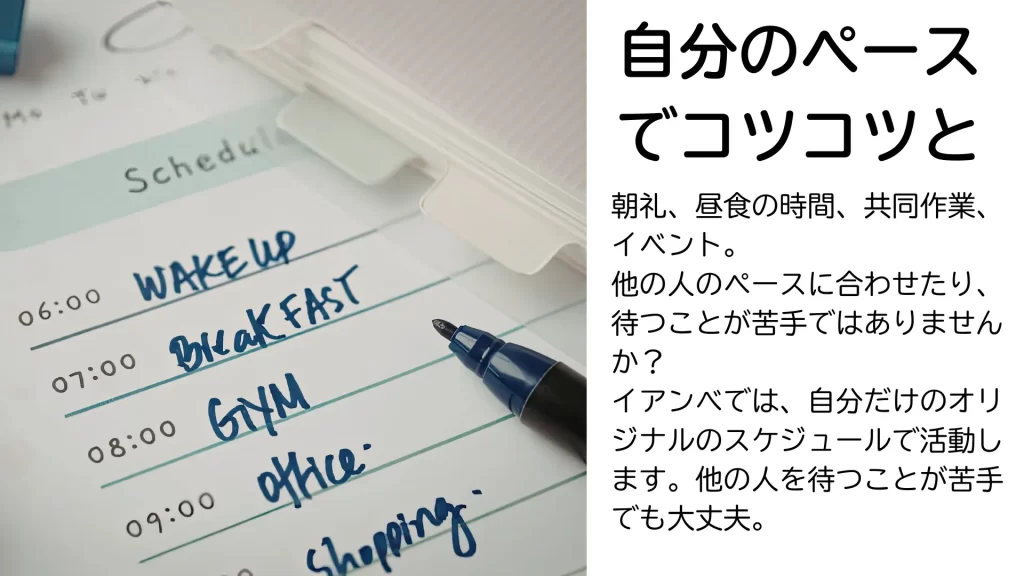 Mo Tu
Schedul
06:00 WAKE UP
07:00 BreaKFAST
08:00 GYM
09:00 office.
shopping.
自分のペース
でコツコツと
朝礼、昼食の時間、共同作業、
イベント。
他の人のペースに合わせたり、
待つことが苦手ではありません
か？
イアンベでは、自分だけのオリ
ジナルのスケジュールで活動し
ます。他の人を待つことが苦手
でも大丈夫。